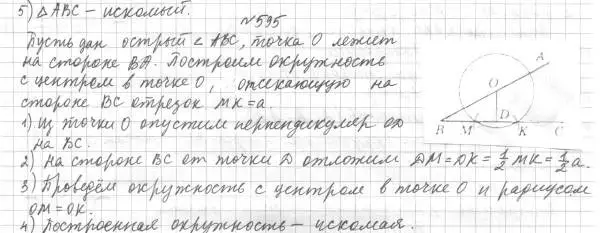 5) △ABC – искомый.
№595
Пусть дан острый ∠ ABC, точка O лежит
на стороне BA. Построим окружность
с центром в точке O, отсекающую на
стороне BC отрезок MK=a.
1) Из точки O опустим перпендикуляр OD
на BC.
2) На стороне BC от точки D отложим DM=DK=1/2 MK=1/2 a.
3) Проведём окружность с центром в точке O и радиусом
OM=OK.
4) Построенная окружность – искомая.
A
O
D
B M K C